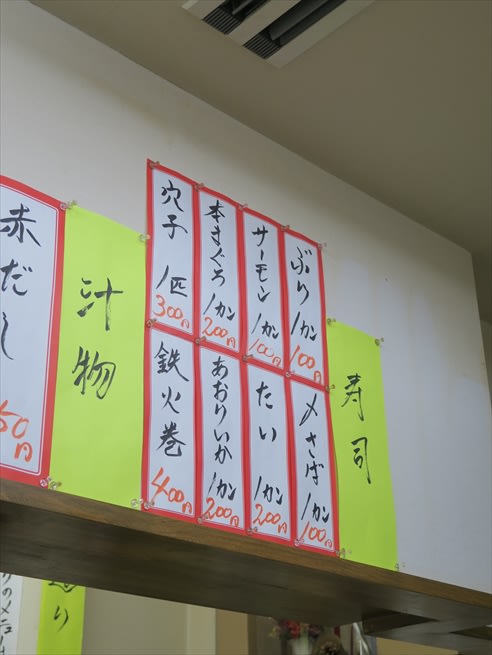 寿司
ぶり 1カン 100円
サーモン 1カン 100円
本まぐろ 1カン 200円
穴子 1匹 300円
〆さば 1カン 100円
たい 1カン 200円
あおりいか 1カン 200円
鉄火巻 400円
汁物
赤だし
50円